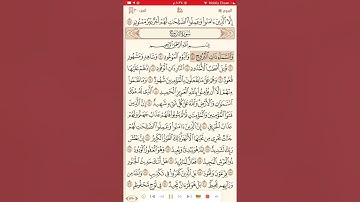 إِلَّا ٱلَّذِينَ ءَامَنُوا۟ وَعَمِلُوا۟ ٱلصَّٰلِحَٰتِ لَهُمْ أَجْرٌ غَيْرُ مَمْنُونٍۭ
سُورَةُ البُرُوجِ
بِسْمِ ٱللَّهِ ٱلرَّحْمَٰنِ ٱلرَّحِيمِ
وَٱلسَّمَآءِ ذَاتِ ٱلْبُرُوجِ ١ وَٱلْيَوْمِ ٱلْمَوْعُودِ ٢ وَشَاهِدٍ وَمَشْهُودٍ ٣
قُتِلَ أَصْحَٰبُ ٱلْأُخْدُودِ ٤ ٱلنَّارِ ذَاتِ ٱلْوَقُودِ ٥ إِذْ هُمْ عَلَيْهَا
قُعُودٌ ٦ وَهُمْ عَلَىٰ مَا يَفْعَلُونَ بِٱلْمُؤْمِنِينَ شُهُودٌ ٧ وَمَا نَقَمُوا۟
مِنْهُمْ إِلَّآ أَن يُؤْمِنُوا۟ بِٱللَّهِ ٱلْعَزِيزِ ٱلْحَمِيدِ ٨ ٱلَّذِى لَهُۥ مُلْكُ
ٱلسَّمَٰوَٰتِ وَٱلْأَرْضِ وَٱللَّهُ عَلَىٰ كُلِّ شَىْءٍ شَهِيدٌ ٩ إِنَّ ٱلَّذِينَ
فَتَنُوا۟ ٱلْمُؤْمِنِينَ وَٱلْمُؤْمِنَٰتِ ثُمَّ لَمْ يَتُوبُوا۟ فَلَهُمْ عَذَابُ جَهَنَّمَ وَلَهُمْ
عَذَابُ ٱلْحَرِيقِ ١٠ إِنَّ ٱلَّذِينَ ءَامَنُوا۟ وَعَمِلُوا۟ ٱلصَّٰلِحَٰتِ لَهُمْ جَنَّٰتٌ
تَجْرِى مِن تَحْتِهَا ٱلْأَنْهَٰرُ ذَٰلِكَ ٱلْفَوْزُ ٱلْكَبِيرُ ١١ إِنَّ بَطْشَ
رَبِّكَ لَشَدِيدٌ ١٢ إِنَّهُۥ هُوَ يُبْدِئُ وَيُعِيدُ ١٣ وَهُوَ ٱلْغَفُورُ ٱلْوَدُودُ ١٤
ذُو ٱلْعَرْشِ ٱلْمَجِيدُ ١٥ فَعَّالٌ لِّمَا يُرِيدُ ١٦ هَلْ أَتَىٰكَ حَدِيثُ ٱلْجُنُودِ ١٧
فِرْعَوْنَ وَثَمُودَ ١٨ بَلِ ٱلَّذِينَ كَفَرُوا۟ فِى تَكْذِيبٍ ١٩ وَٱللَّهُ مِن
وَرَآئِهِم مُّحِيطٌۢ ٢٠ بَلْ هُوَ قُرْءَانٌ مَّجِيدٌ ٢١ فِى لَوْحٍ مَّحْفُوظٍۭ ٢٢